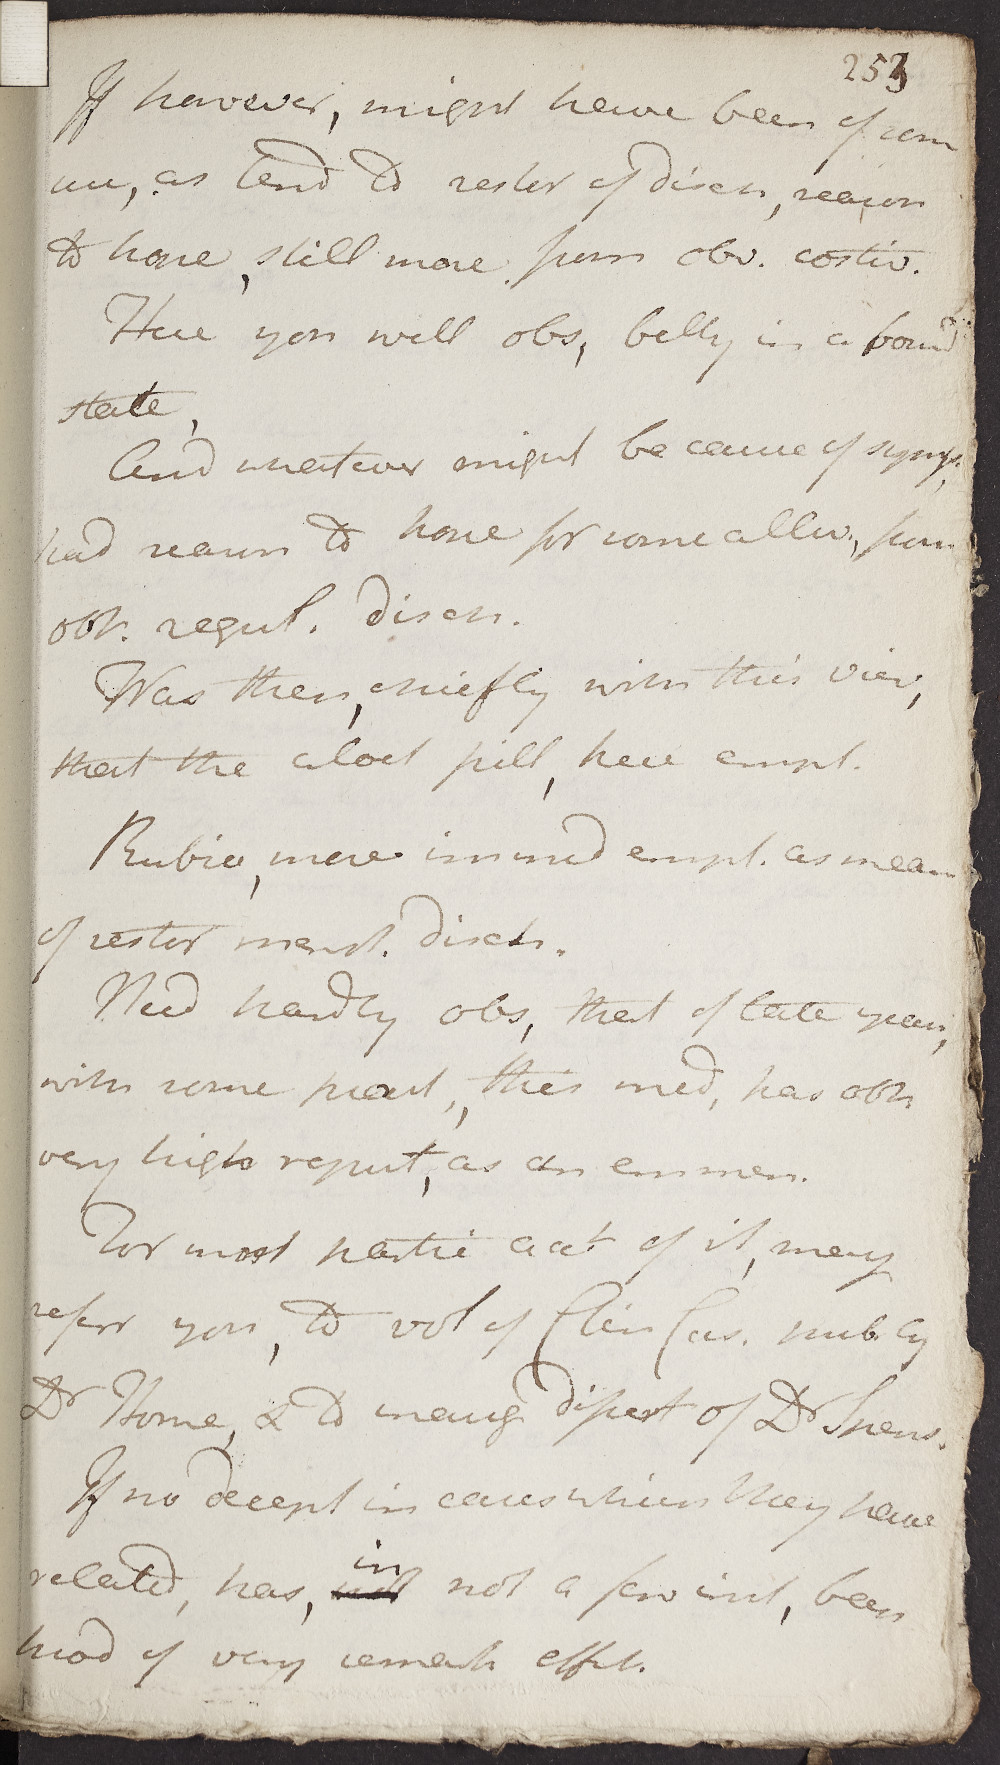 253
If however, might have been of som
use, as tend to restor of disch, reason
to hope, still more from obv. costiv.
Here you will obs, belly in a bound
state,
And whatever might be cause of symp,
had reason to hope for some allev, from
obt. regul. disch.
Was then, chiefly with this view,
that the aloet pill, here empl.
Rubia, more immed empl. as mean
of restor menst. disch.
Need hardly obs, that of late years,
with some pract, this med, has obt
very high reput, as an emmen.
For most partic acct of it, may
refer you, to vol of Clin Cas. pub. by
Dr Home, & to inaug dissert of Dr Spens.
If no decept in cases which they have
related, has, in not a few inst, been
prod of very remark effect.